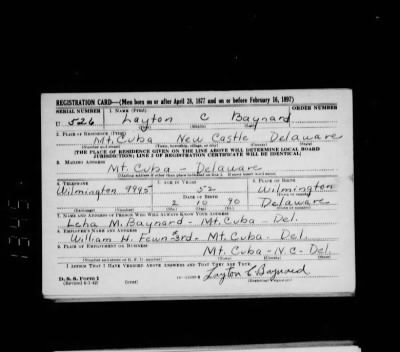 REGISTRATION CARD—(Men born on or after April 28, 1877 and on or before February 16, 1897)
SERIAL NUMBER 1. NAME (Print) ORDER NUMBER
U 526 Layton C Baynard
(First) (Middle) (Last)
2. PLACE OF RESIDENCE (Print)
Mt. Cuba New Castle Delaware
(Number and street) (Town, township, village, or city) (County) (State)
[THE PLACE OF RESIDENCE GIVEN ON THE LINE ABOVE WILL DETERMINE LOCAL BOARD
JURISDICTION; LINE 2 OF REGISTRATION CERTIFICATE WILL BE IDENTICAL]
3. MAILING ADDRESS
Mt. Cuba - Delaware
4. TELEPHONE 5. AGE IN YEARS 6. PLACE OF BIRTH
Wilmington 9995 52 Wilmington
DATE OF BIRTH
2 10 90 Delaware
(Mo.) (Day) (Yr.)
7. NAME AND ADDRESS OF PERSON WHO WILL ALWAYS KNOW YOUR ADDRESS
M. Baynard - Mt. Cuba - Del.
8. EMPLOYER'S NAME AND ADDRESS
William H. 3rd - Mt. Cuba - Del.
9. PLACE OF EMPLOYMENT OR BUSINESS
Mt. Cuba - N.C. - Del.
(Number and street or R. F. D. number) (Town) (County) (State)
I AFFIRM THAT I HAVE VERIFIED ABOVE ANSWERS AND THAT THEY ARE TRUE.
D. S. S. Form 1
Layton C Baynard